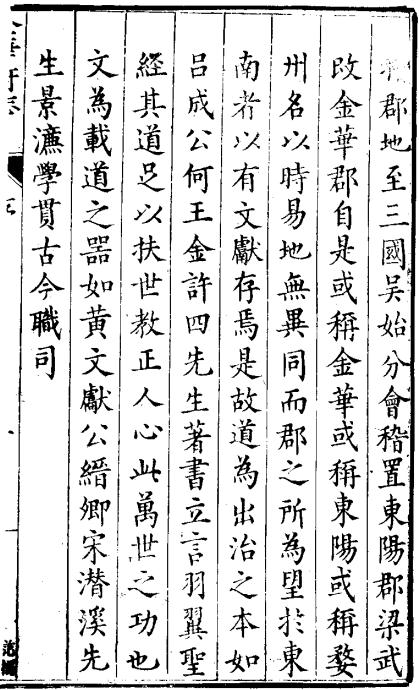 郡地至三國吳始分會稽置東陽郡梁武
改金華郡自是或稱金華或稱東陽或稱婺
州名以時易地無異同而郡之所為望於東
南者以有文獻存焉是故道為出治之本如
呂成公何王金許四先生著書立言羽翼聖
經其道足以扶世教正人心此萬世之功也
文為載道之噐如黄文獻公縉卿宋潜溪先
生景濂學貫古今職司